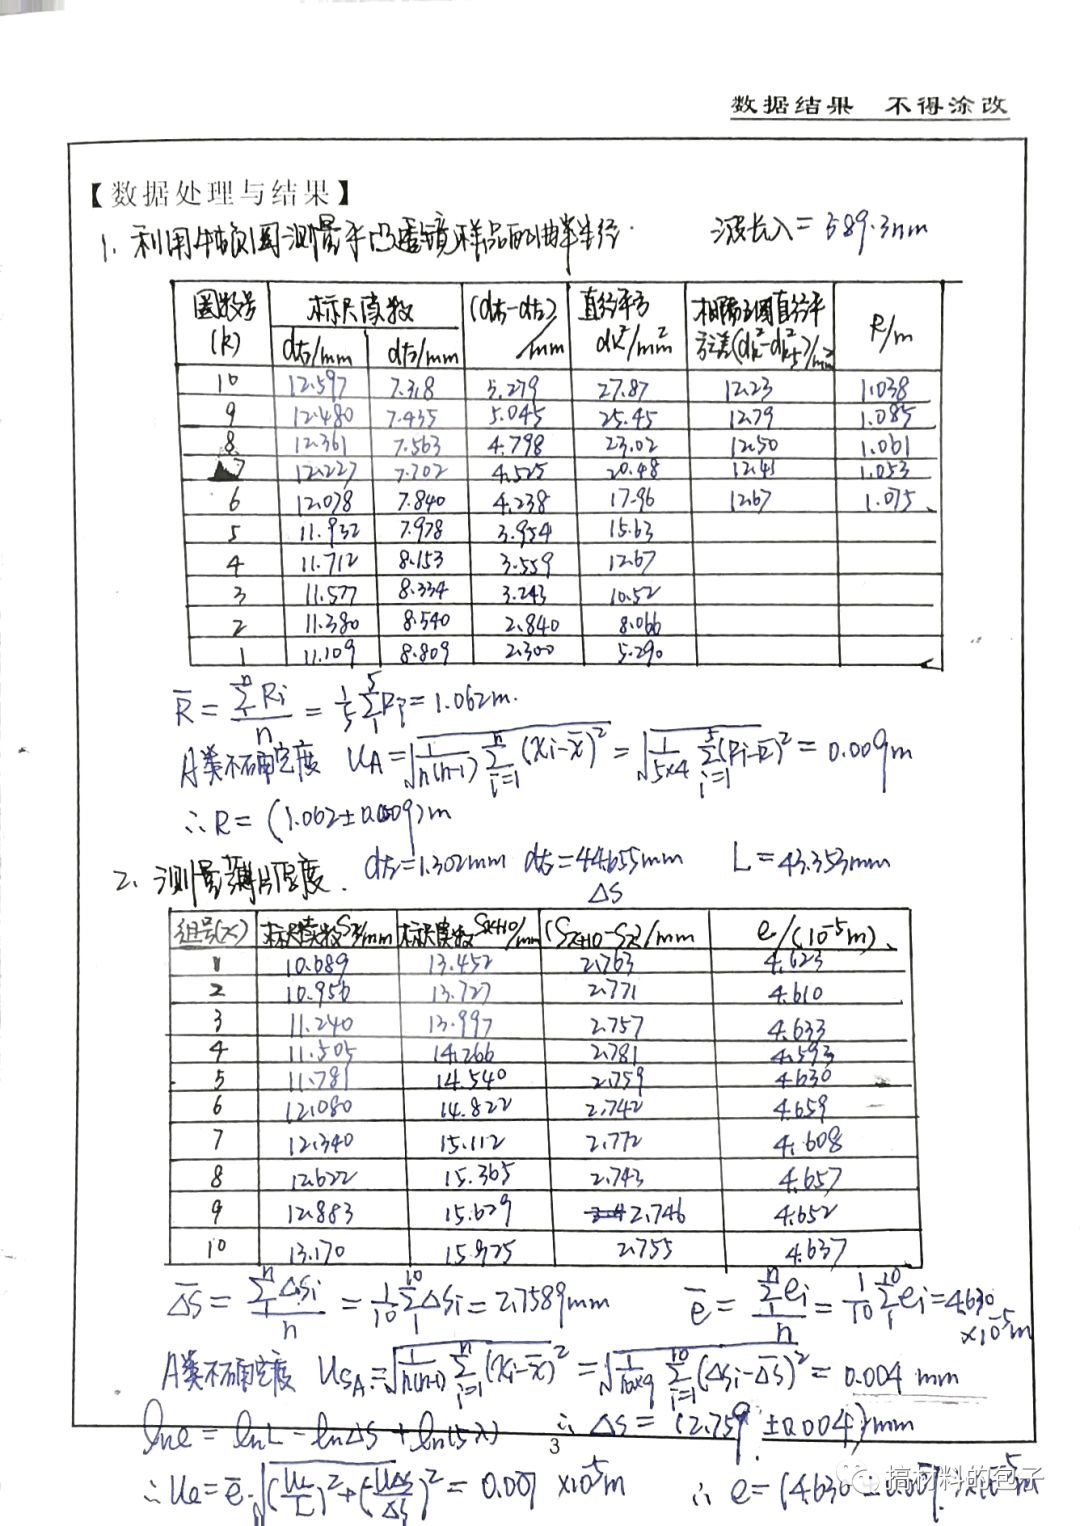 数据结果 不得涂改
【数据处理与结果】
1. 利用牛顿圈测量平凸透镜样品的曲率半径. 波长λ=589.3nm
圈数号(k) 标尺读数 (d左-d右)/mm 直径平方dk²/mm² 相隔5圈直径平方之差(dk²-dk-5²)/mm² R/m
d左/mm d右/mm
10 12.597 7.318 5.279 27.87 12.23 1.038
9 12.480 7.435 5.045 25.45 12.79 1.085
8 12.361 7.563 4.798 23.02 12.50 1.061
7 12.227 7.702 4.525 20.48 12.41 1.053
6 12.078 7.840 4.238 17.96 12.67 1.075
5 11.932 7.978 3.954 15.63
4 11.712 8.153 3.559 12.67
3 11.577 8.334 3.243 10.52
2 11.380 8.540 2.840 8.066
1 11.109 8.809 2.300 5.290
R̄ = ΣRi/n = 1/5 Σ Ri = 1.062m.
A类不确定度 UA = √(1/n(n-1) Σ(xi-x̄)²) = √(1/5×4 Σ(Ri-R̄)²) = 0.009m
∴R = (1.062±0.009)m
2. 测量薄片厚度. d左=1.302mm d右=44.655mm L=43.353mm
ΔS
组号(x) 标尺读数Sx/mm 标尺读数Sx+10/mm (Sx+10-Sx)/mm e/(10⁻⁵m)
1 10.689 13.452 2.763 4.623
2 10.956 13.727 2.771 4.610
3 11.240 13.997 2.757 4.633
4 11.505 14.266 2.781 4.593
5 11.781 14.540 2.759 4.630
6 12.080 14.822 2.742 4.659
7 12.340 15.112 2.772 4.608
8 12.622 15.365 2.743 4.657
9 12.883 15.629 2.746 4.652
10 13.170 15.925 2.755 4.637
ΔS̄ = ΣΔSi/n = 1/10 Σ ΔSi = 2.7589mm ē = Σei/n = 1/10 Σ ei = 4.630×10⁻⁵m
A类不确定度 USA = √(1/n(n-1) Σ(xi-x̄)²) = √(1/10×9 Σ(ΔSi-ΔS̄)²) = 0.004 mm
lne = lnL - lnΔS + ln(5λ) ∴ ΔS = (2.759 ±0.004)mm
3
∴Ue = ē·√((UL/L)²+(UΔS/ΔS)²) = 0.007 ×10⁻⁵m ∴ e = (4.630±0.007)×10⁻⁵m
搞材料的包子